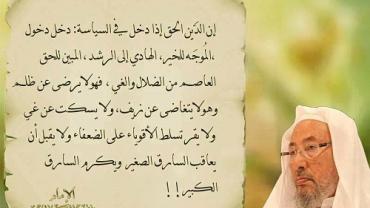 إن الدّين الحق إذا دخل في السياسة: دخل دخول
المُوجّه للخير، الهادي إلى الرشد، المبين للحق
العاصم من الضلال والغي ، فهو لا يرضى عن ظلم
وهو لا يتغاضى عن زيف، ولا يسكت عن غي
ولا يقر تسلط الأقوياء على الضعفاء ولا يقبل أن
يعاقب السارق الصغير ويكرم السارق
الكبير !!